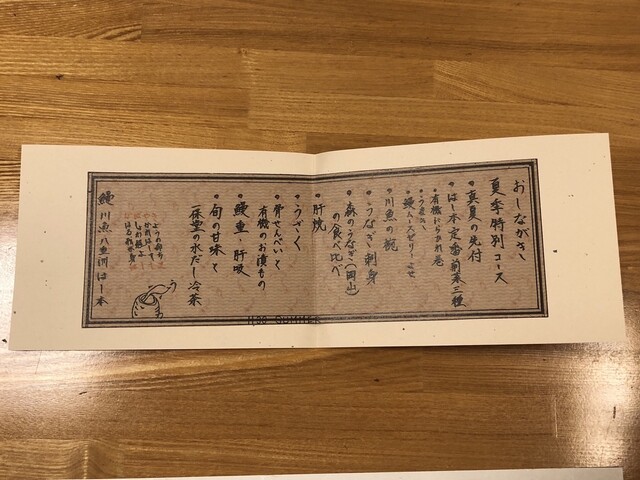 おしながき
夏季特別コース
・真夏の先付
・はし本定番前菜三種
・有機にら玉子巻
・うまき
・鰻ムースゼリーよせ
・川魚の椀
・うなぎ刺身
・森のうなぎ(岡山)
の食べ比べ
・肝焼
・うざく
・骨せんべいと
有機のお漬もの
・鰻重・肝吸
・旬の甘味と
一保堂の水だし冷茶
鰻 川魚 八重洲 はし本